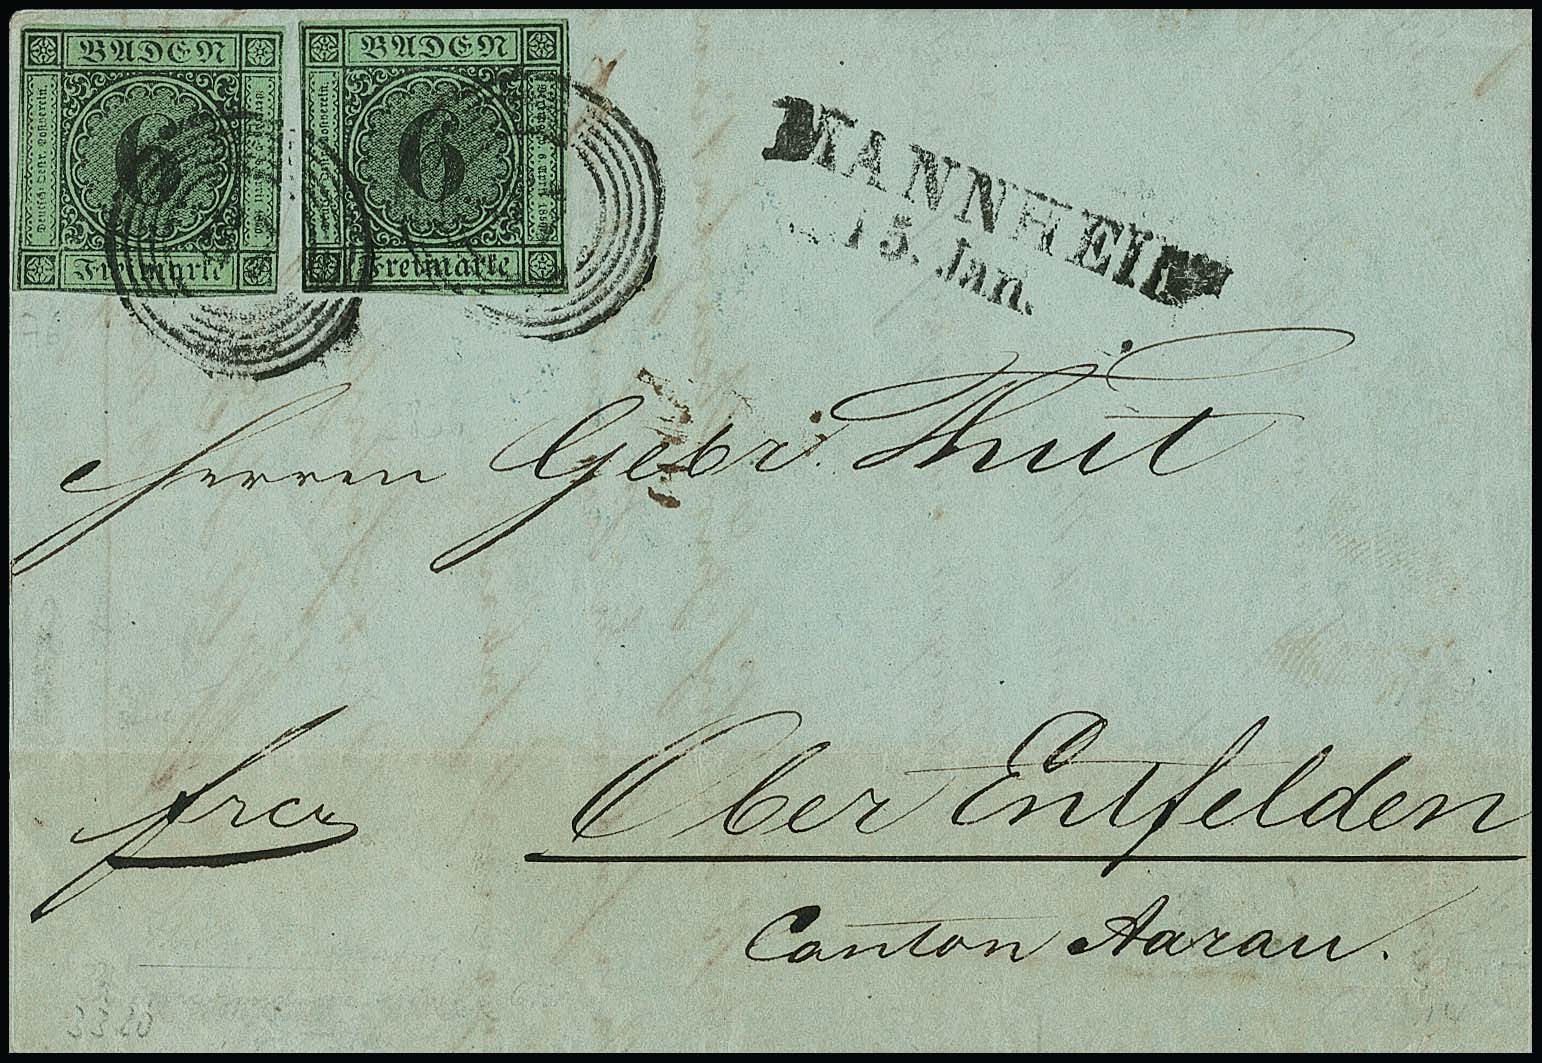 BADEN
Deutsch-Oestr. Postverein.
6
Freimarke
BADEN
6
Freimarke
MANNHEIM
15. Jan.
Herren Gebr. Thut
frco
Ober Entfelden
Canton Aarau.